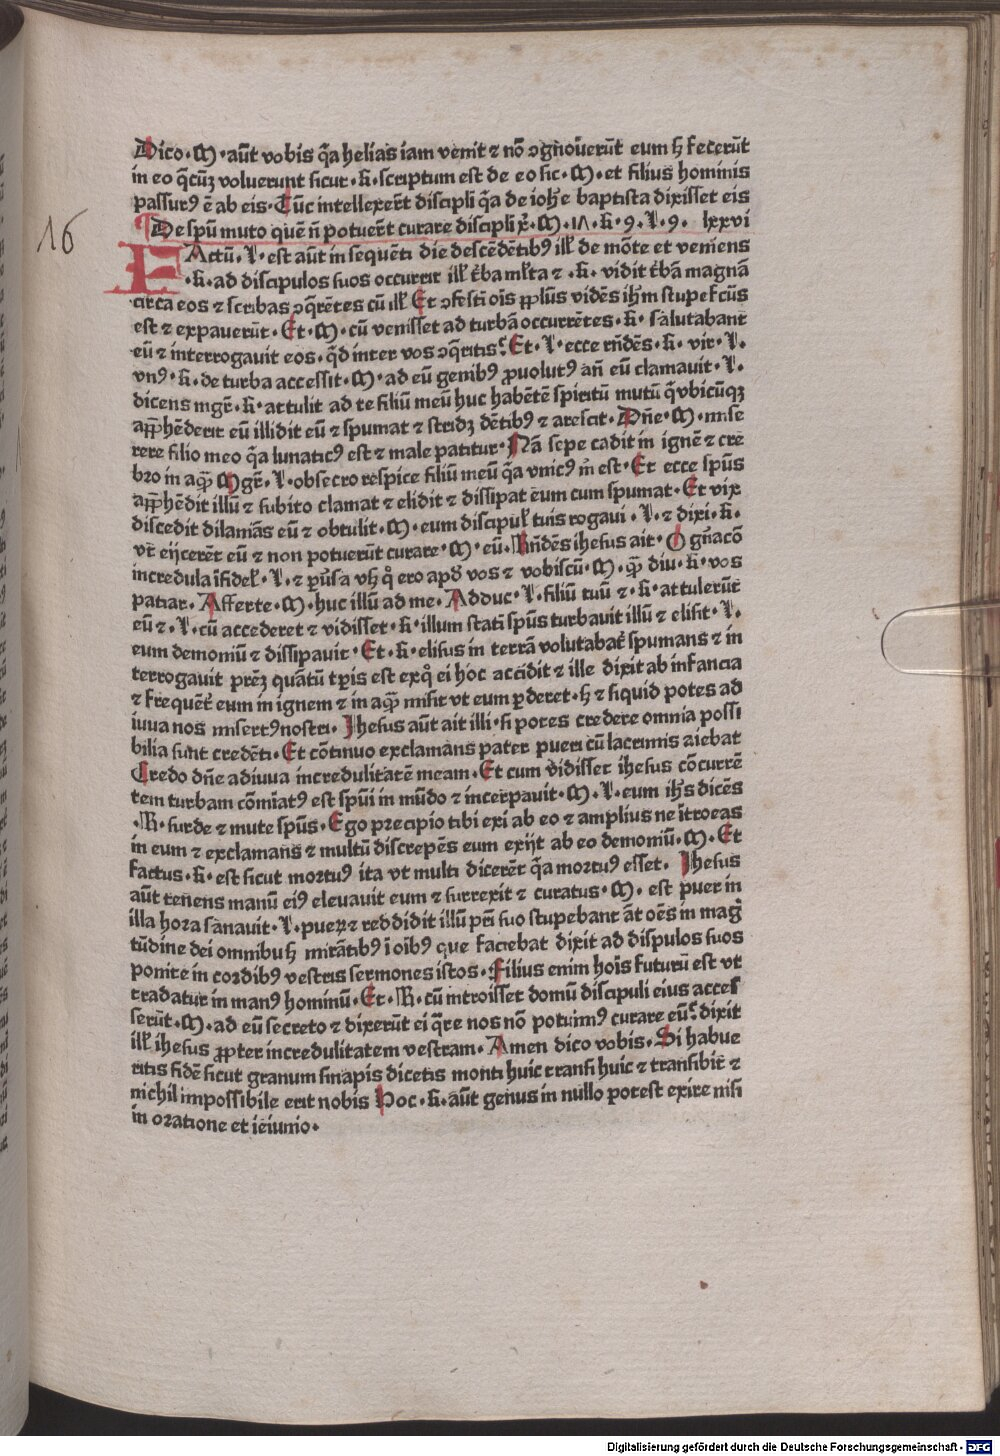 Dico·M·aūt vobis q̄a helias iam venit ⁊ nō ꝯgnoūerūt eum ɧ fecerūt
in eo q̄cūꝫ voluerunt sicut·R·scriptum est de eo sic·M·et filius hominis
passurꝰ ē ab eis·Tūc intellexerūt discipli q̄a de ioħe baptista dixisset eis
De spū muto quē n̄ potuer̄t curare discipli xp̄·M·17·R·9·L·9· lxxvi
16
FActū·L·est aūt in sequēti die descēdētibꝰ ill' de mōte et veniens
·R·ad discipulos suos occurrit ill' t̄ba ml'ta ⁊·R·vidit t̄bā magnā
circa eos ⁊ scribas ꝯq̄rētes cū ill' Et ꝯfestī oīs ppl'us vidēs ih̄m stupefc̄us
est ⁊ expauerūt·Et·M·cū venisset ad turbā occurrētes·R·salutabant
eū ⁊ interrogavit eos·q̄d inter vos ꝯq̄ritis? Et·L·ecce rn̄dēs·R·vir·L·
vnꝰ·R·de turba accessit·M·ad eū genibꝰ ꝓuolutꝰ an̄ eū clamauit·L·
dicens mgr̄·R·attulit ad te filiū meū huc habētē spiritū mutū q̄ vbicūqꝫ
app̄hēderit eū illidit eū ⁊ spumat ⁊ stridꝫ dētibꝰ ⁊ arescit·Dn̄e·M·mise
rere filio meo q̄a lunaticꝰ est ⁊ male patitur·Nā sepe cadit in ignē ⁊ cre
bro in aq̄ꝫ Mgr̄·L·obsecro respice filiū meū q̄a vnicꝰ m̄ est·Et ecce spūs
app̄hēdit illū ⁊ subito clamat ⁊ elidit ⁊ dissipat eum cum spumat·Et vix
discedit dilaniās eū ⁊ obtulit·M·eum discipul' tuis rogaui·L·⁊ dixi·R·
vt eijcerēt eū ⁊ non potuerūt curare·M·eū·Rn̄dēs ihesus ait·O gn̄acō
incredula īfidel'·L·⁊ ꝑūsa vsqꝫ q̊ ero apd̄ vos ⁊ vobiscū·M·q̄ꝫ diu·R·vos
patiar·Afferte·M·huc illū ad me·Adduc·L·filiū tuū ⁊·R·attulerūt
eū ⁊·L·cū accederet ⁊ vidisset·R·illum statī spūs turbauit illū ⁊ elisit·L·
eum demoniū ⁊ dissipauit·Et·R·elisus in terrā volutabat' spumans ⁊ in
terrogauit pr̄eꝫ quātū tp̄is est exq̊ ei hoc accidit ⁊ ille dixit ab infancia
⁊ frequēt' eum in ignem ⁊ in aq̄ꝫ misit vt eum ꝑderet·ɧ ⁊ siquid potes ad
iuua nos misertꝰ nostri·Jhesus aūt ait illi·si potes credere omnia possi
bilia sunt credēti·Et cōtinuo exclamans pater pueri cū lacrimis aiebat
Credo dn̄e adiuua incredulitatē meam·Et cum vidisset ihesus cōcurrē
tem turbam cōmiatꝰ est spūi in mūdo ⁊ increpauit·M·L·eum ihs̄ dicēs
·R·surde ⁊ mute spūs·Ego precipio tibi exi ab eo ⁊ amplius ne ītroeas
in eum ⁊ exclamans ⁊ multū discrepēs eum exijt ab eo demoniū·M·Et
factus·R·est sicut mortuꝰ ita vt multi dicerēt q̄a mortuꝰ esset· Jhesus
aūt tenens manū eiꝰ eleuauit eum ⁊ surrexit ⁊ curatus·M·est puer in
illa hora sanauit·L·pueꝝ ⁊ reddidit illū pr̄i suo stupebant āt oēs in mag
tūdine dei omnibuɧ mirātibꝰ ī oībꝰ que faciebat dixit ad dispulos suos
ponite in cordibꝰ vestris sermones istos·Filius enim hoīs futurū est vt
tradatur in manꝰ hominū·Et·R·cū introisset domū discipuli eius access
serūt·M·ad eū secreto ⁊ dixerūt ei q̄re nos nō potuimꝰ curare eū? dixit
ill' ihesus ꝓpter incredulitatem vestram·Amen dico vobis·Si habue
ritis fidē sicut granum sinapis dicetis monti huic transi huic ⁊ transibit ⁊
nichil impossibile erit nobis Hoc·R·aūt genus in nullo potest exire nisi
in oratione et ieiunio·
Digitalisierung gefördert durch die Deutsche Forschungsgemeinschaft - DFG